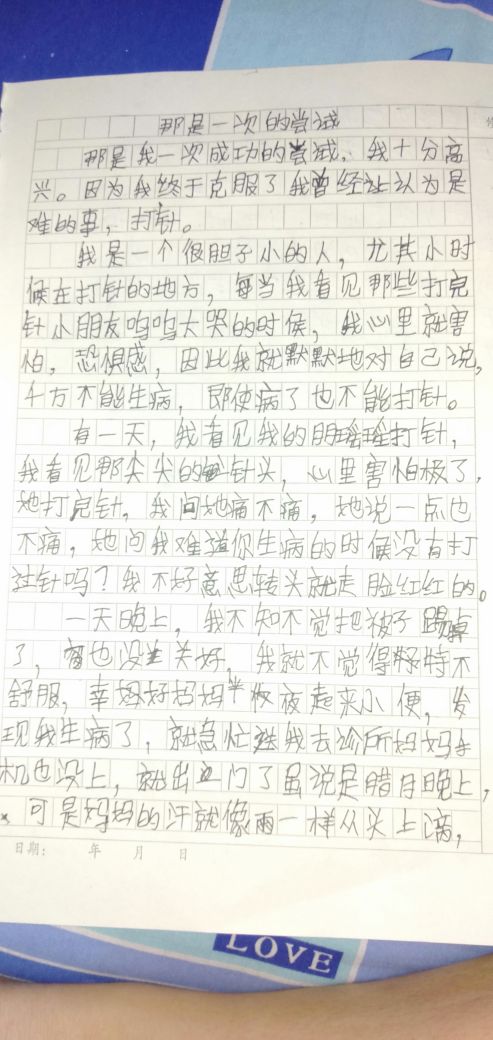 那是一次的尝试
那是我一次成功的尝试，我十分高
兴。因为我终于克服了我曾经让认为是
难的事，打针。
我是一个很胆子小的人，尤其小时
候在打针的地方，每当我看见那些打完
针小朋友呜呜大哭的时候，我心里就害
怕，恐惧感，因此我就默默地对自己说，
千万不能生病，即使病了也不能打针。
有一天，我看见我的朋瑶瑶打针，
我看见那尖尖的针头，心里害怕极了，
她打完针，我问她痛不痛，她说一点也
不痛，她问我难道你生病的时候没有打
过针吗？我不好意思转头就走脸红红的。
一天晚上，我不知不觉把被子踢掉
了，窗也没关好，我就不觉得特不
舒服，幸妈好妈妈半夜起来小便，发
现我生病了，就急忙我去诊所妈妈手
机也没上，就出门了虽说是腊月晚上，
可是妈妈的汗就像雨一样从头上滴，
日期： 年 月 日
LOVE